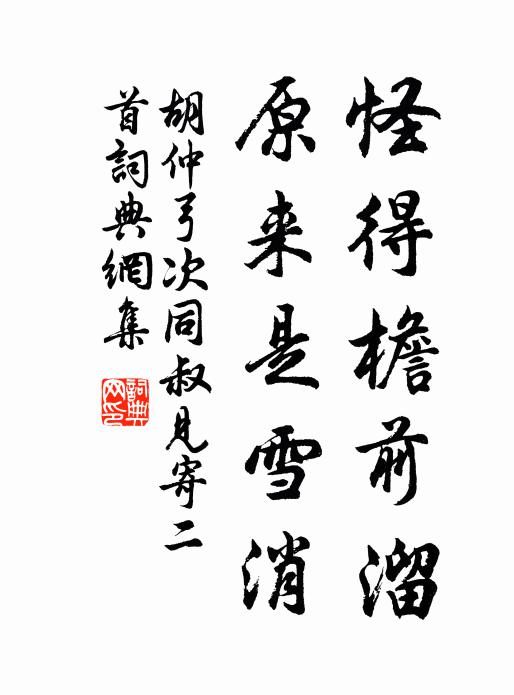 怪得檐前溜
原来是雪消
胡仲弓次同叔見寄二
首詞典網集
詞典网印